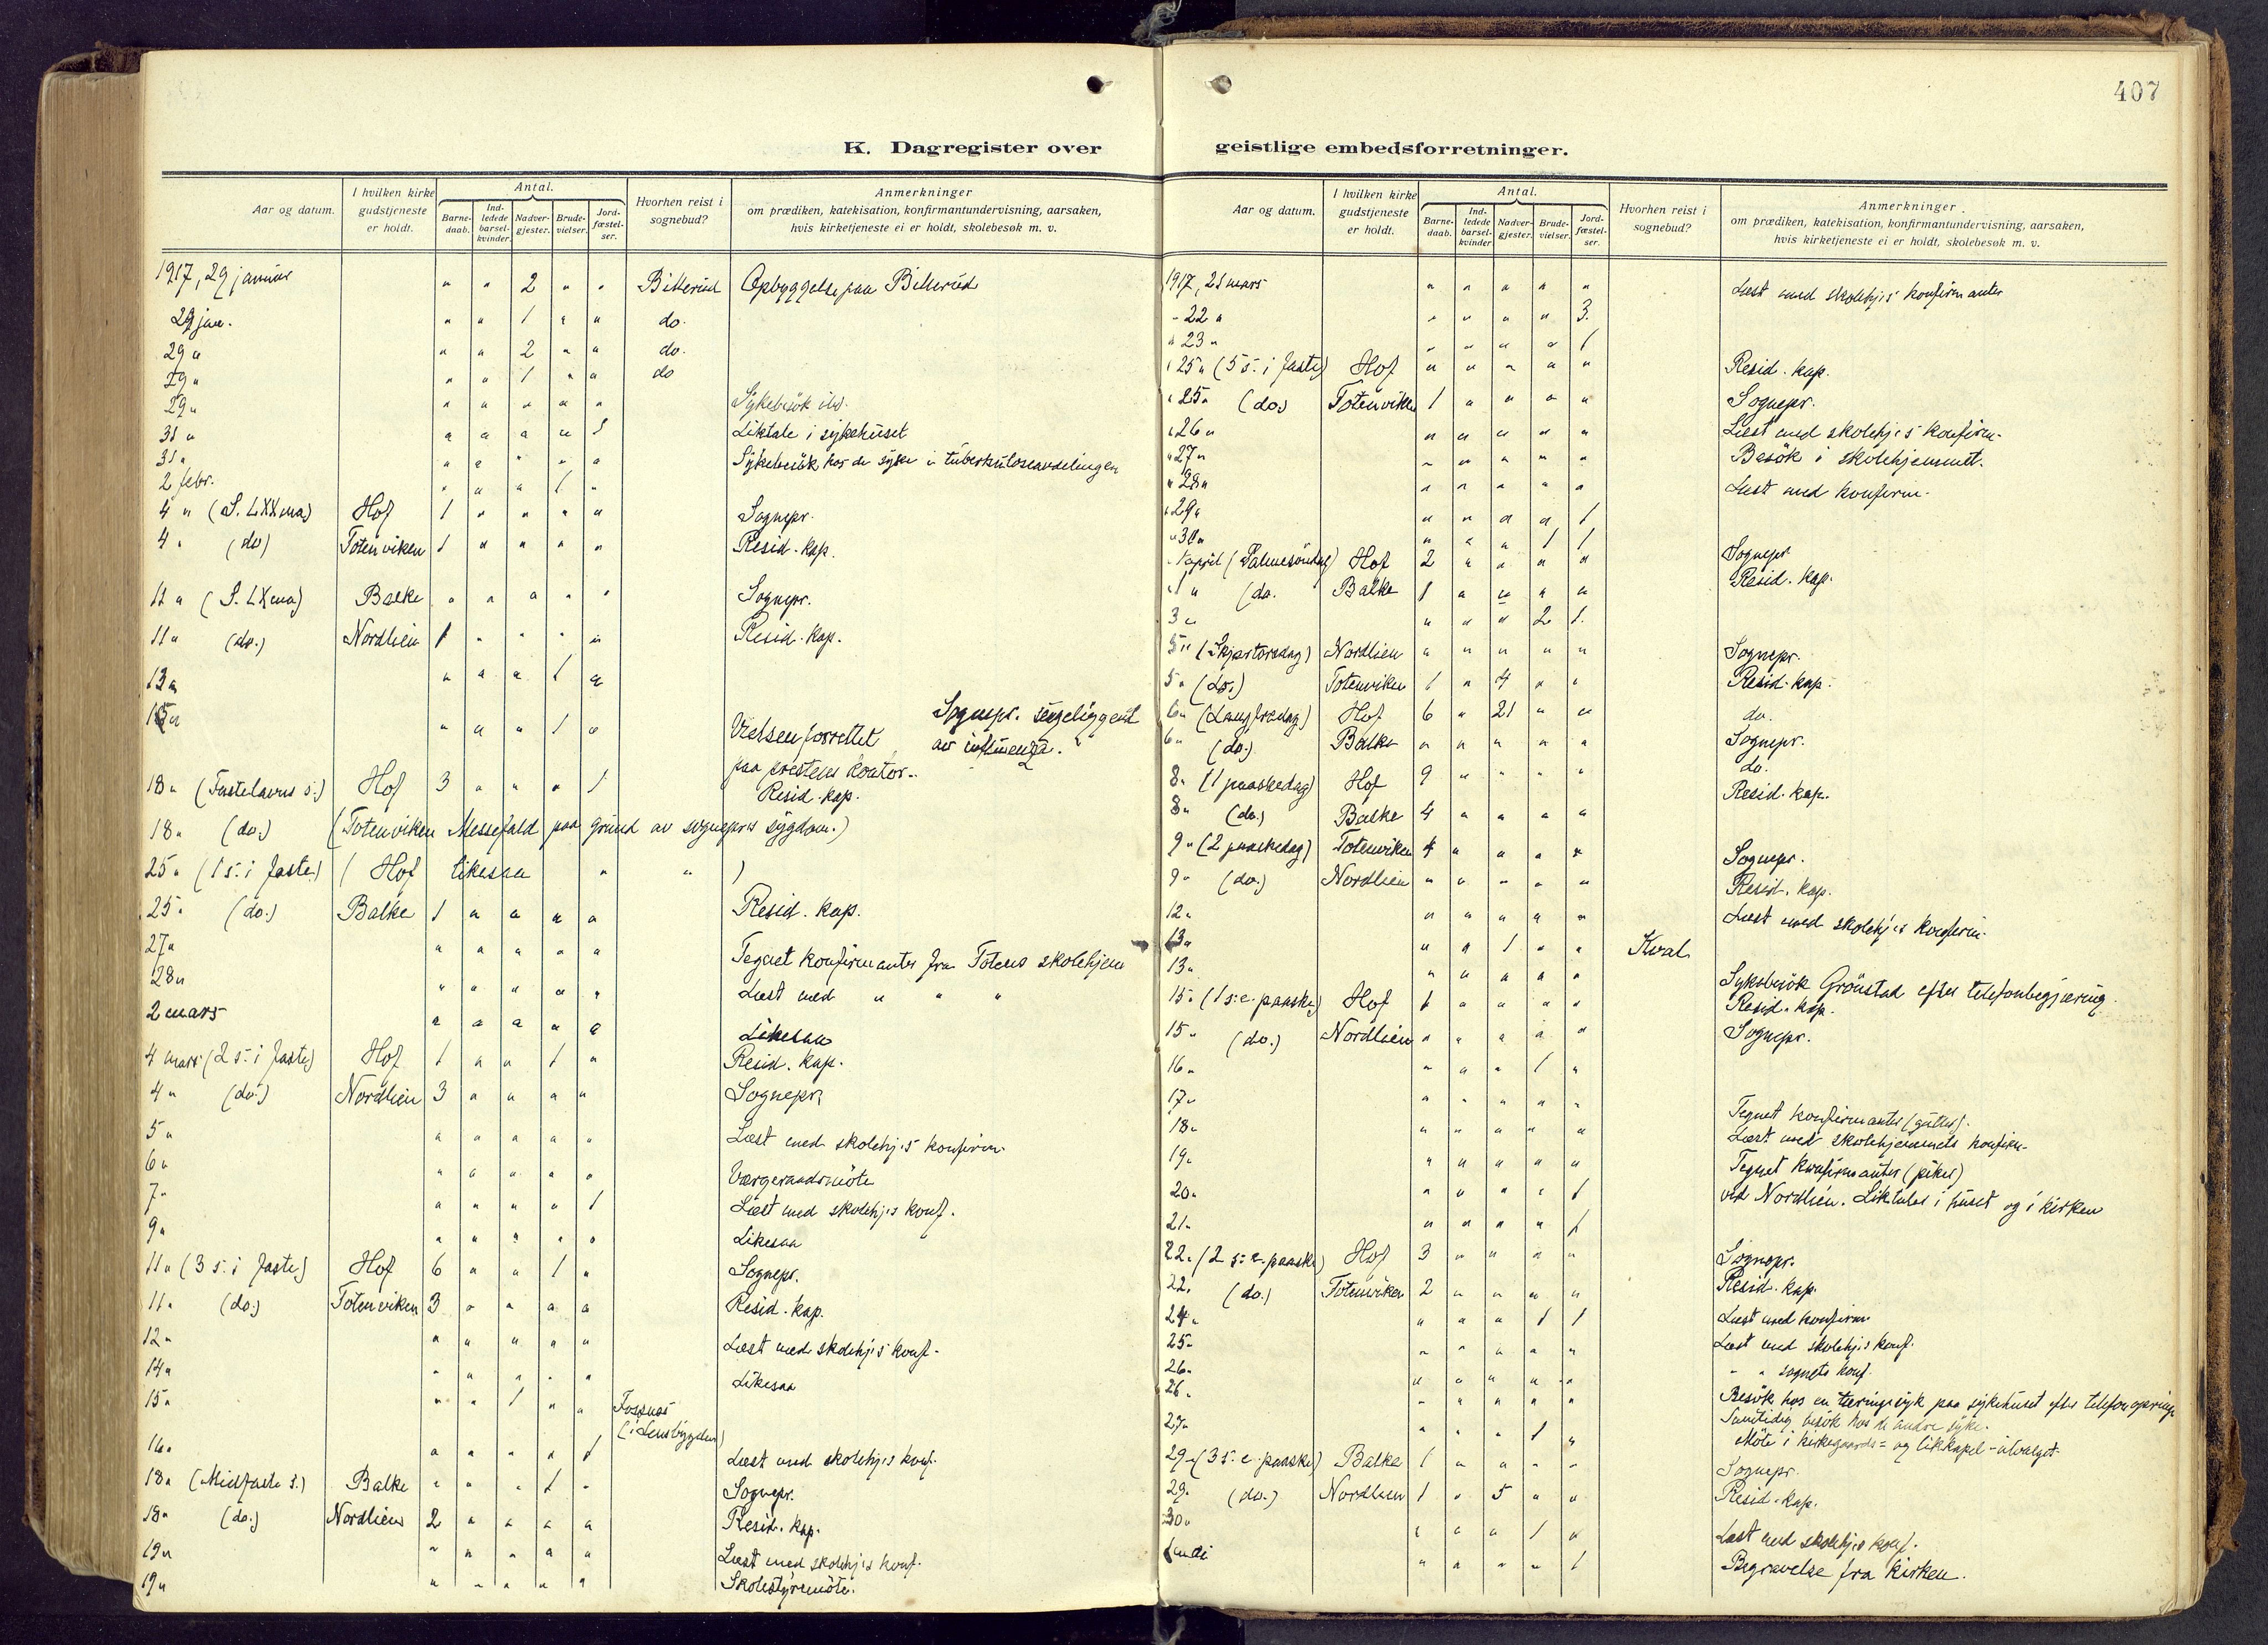 407
K. Dagregister over geistlige embedsforretninger.
Aar og datum. I hvilken kirke gudstjeneste er holdt. Antal. Barne-daab. Ind-ledede barsel-kvinder. Nadver-gjester. Brude-vielser. Jord-fæstel-ser. Hvorhen reist i sognebud? Anmerkninger om prædiken, katekisation, konfirmantundervisning, aarsaken, hvis kirketjeneste ei er holdt, skolebesøk m. v.
1917, 29 januar " " 2 " " Bitterud Opbyggelse paa Bitterud
29 jan. " " 1 " " do.
29 " " " 2 " " do.
29 " " " 1 " " do
29 " " " " " " Sykebesök
31 " " " " " 1 Liktale i sykehuset
31 " " " " " " Sykebesök hos de syke i tuberkuloseavdelingen
2 febr. " " " 1 "
4 " (S. LXXma) Hof 1 " " " " Sognepr.
4 " (do) Totenviken 1 " " " " Resid. kap.
11 " (S. LXma) Balke " " " " " Sognepr.
11 " (do.) Nordlien 1 " " " " Resid. kap.
13 " " " " 1 "
15 " " " " 1 " Vielsen forrettet paa prestens kontor. Sognepr. sengeliggende av influenza.
18 " (Fastelavns s.) Hof 3 " " " 1 Resid. kap.
18 " (do.) (Totenviken Messefald paa grund av sognepr's sygdom.)
25 " (1 s. i faste) (Hof likesaa " " )
25 " (do.) Balke 1 " " " " Resid. kap.
27 " " " " " " Tegnet konfirmanter fra Totens skolehjem
28 " " " " " " Læst med " " "
2 mars " " " " " Likesaa
4 mars (2 s. i faste) Hof 1 " " 1 " Resid. kap.
4 " (do.) Nordlien 3 " " " " Sognepr.
5 " " " " " " Læst med skolehj's konfirm.
6 " " " " " " Værgeraadsmöte
7 " " " " " 1 Læst med skolehj's konf.
9 " " " " " " Likesaa
11 " (3 s. i faste) Hof 6 " " 1 " Sognepr.
11 " (do.) Totenviken 3 " " " " Resid. kap.
12 " " " " " " Læst med skolehj's konf.
14 " " " " " " Likesaa
15 " " " 1 " " Fossnes
16 " " " " " 1 Læst med skolehjs konf.
18 " (Midfaste s.) Balke " " " 1 " Sognepr.
18 " (do.) Nordlien 2 " " " " Resid. kap.
19 " " " " " " Læst med skolehj's konf.
19 " " " " " " Skolestyremöte.
Aar og datum. I hvilken kirke gudstjeneste er holdt. Antal. Barne-daab. Ind-ledede barsel-kvinder Nadver-gjester. Brude-vielser. Jord-fæstel-ser. Hvorhen reist i sognebud? Anmerkninger om prædiken, katekisation, konfirmantundervisning, aarsaken, hvis kirketjeneste ei er holdt, skolebesøk m. v.
1917, 21 mars " " " " " Læst med skolehjs konfirmanter
" 22 " " " " " 3.
" 23 " " " " " 1
" 25 " (5 s. i faste) Hof " " " " " Resid. kap.
" 25 " (do.) Totenviken 1 " " " " Sognepr.
" 26 " " " " " " Læst med skolehj's konfirm.
" 27 " " " " " " Besök i skolehjemmet.
" 28 " " " " " " Læst med konfirm.
" 29 " " " " " 1
" 30 " " " " 1 1
" 1 april (Palmesöndag) Hof 2 " " " " Sognepr.
" 1 " (do. Balke 1 " " " " Resid. kap.
3 " " " " 2 1.
5 " (Skjærtorsdag) Nordlien " " " " " Sognepr.
5 " (do.) Totenviken 1 " 4 " " Resid. kap.
6 " (Langfredag) Hof 6 " 21 " " do.
6 " (do.) Balke " " " " " Sognepr.
8 " (1 paaskedag) Hof 9 " " " " do.
8 " (do.) Balke 4 " " " " Resid. kap.
9 " (2 paaskedag) Totenviken 4 " " " " Sognepr.
9 " (do.) Nordlien " " " " " Resid. kap.
12 " " " " " " Læst med skolehj's konfirm.
13 " " " 1 " " Kval
13 " " " " " " Sykebesök Grönstad efter telefonbegjæring.
15 " (1 s. e. paaske) Hof 1 " " " " Resid. kap.
15 " (do.) Nordlien " " " " " Sognepr.
16 " " " " 1 "
17 " " " " " " Tegnet konfirmanter (gutter).
18 " " " " " " Læst med skolehjemmets konfirm.
19 " " " " " " Tegnet konfirmanter (piker)
20 " " " " " 1 ved Nordlien. Liktaler i huset og i kirken
21 " " " " " 1
22 " (2 s. e. paaske) Hof 3 " " " " Sognepr.
22 " (do.) Totenviken 2 " " " " Resid. kap.
24 " " " " 1 1 Læst med konfirm
25 " " " " " " Læst med skolehjs konf.
26 " " " " " " " " sognets konf.
26 " " " " " " Besök hos en tæringssyk paa sykehuset efter telefonopringn.
Samtidig besök hos de andre syke.
27 " " " " 1 " Möte i kirkegaards= og likkapel-utvalget.
29 " (3 s. e. paaske) Balke 1 " " " " Sognepr.
29 " (do.) Nordlien 1 " 5 " " Resid. kap.
30 " " " " 1 " Læst med skolehjs konf.
1 mai " " " " 1 Begravelse fra kirken.